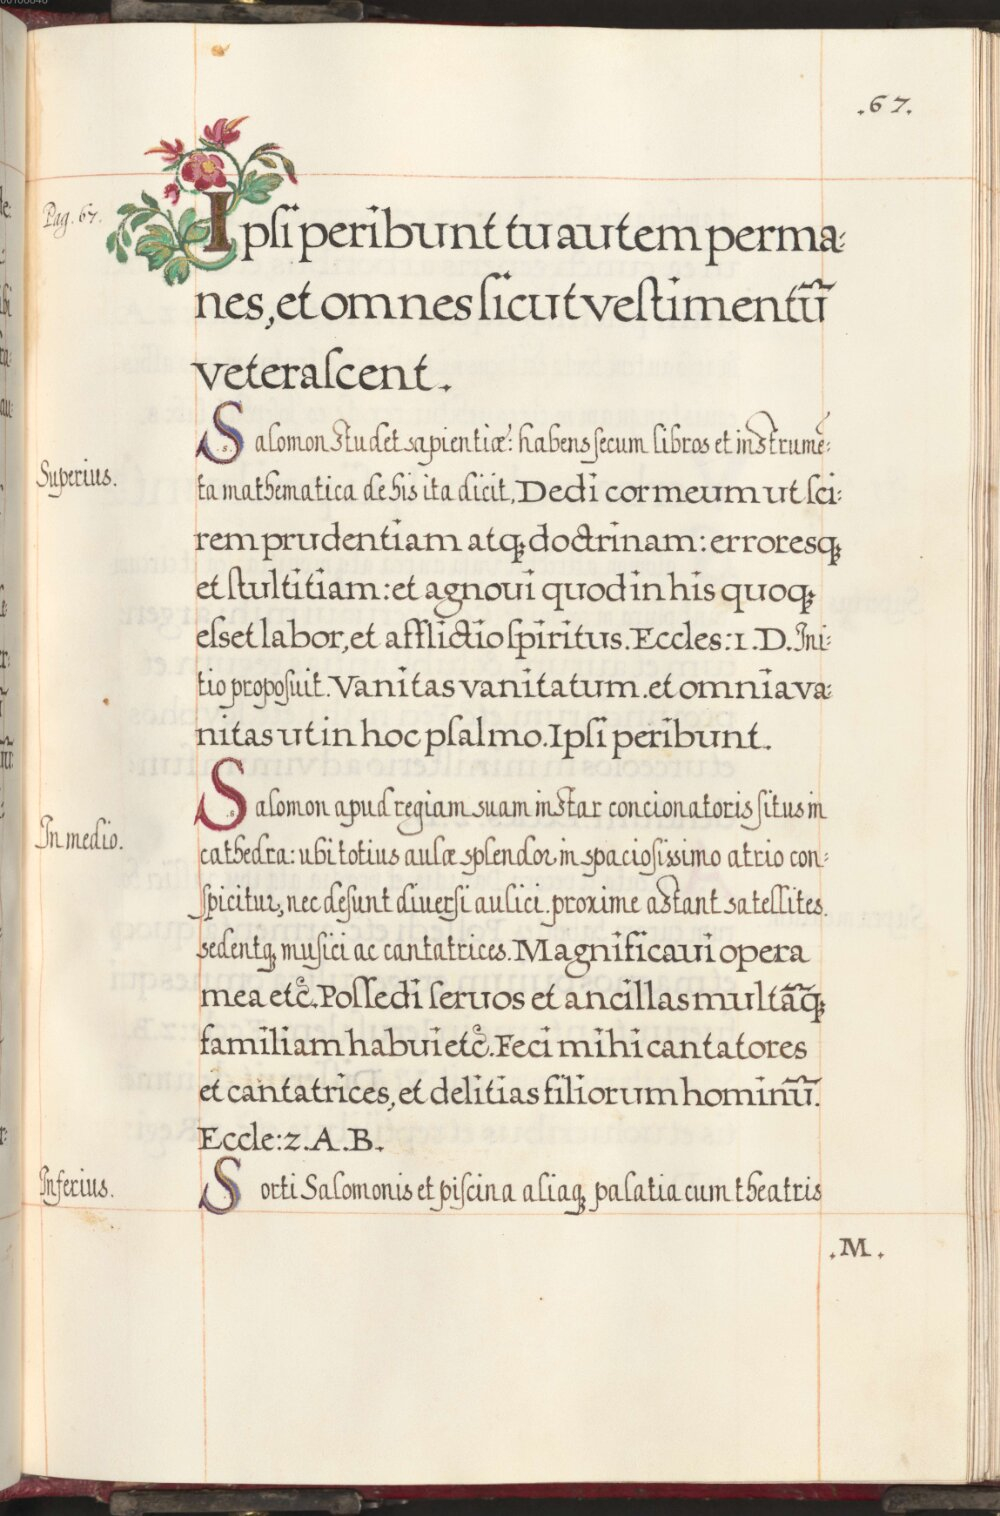 .67.
Pag. 67.
Ipsi peribunt tu autem perma:
nes, et omnes sicut vestimentũ
veterascent.
Salomon studet sapientiæ: habens secum libros et instrumẽ:
Superius.
ta mathematica de his ita dicit, Dedi cor meum ut sci:
rem prudentiam atq; doctrinam: erroresq;
et stultitiam: et agnoui quod in his quoq;
esset labor, et afflictio spiritus. Eccles: 1. D. Ini:
tio proposuit. Vanitas vanitatum. et omnia va:
nitas ut in hoc psalmo. Ipsi peribunt.
Salomon apud regiam suam instar concionatoris situs in
In medio.
cathedra: ubi totius aulæ splendor in spaciosissimo atrio con:
spicitur, nec desunt diuersi aulici. proxime astant satellites.
sedentq; musici ac cantatrices. Magnificaui opera
mea etc̊. Possedi seruos et ancillas multãq;
familiam habui etc̊. Feci mihi cantatores
et cantatrices, et delitias filiorum hominũ.
Eccle: 2. A. B.
Inferius.
Sorti Salomonis et piscina aliaq; palatia cum theatris
.M.